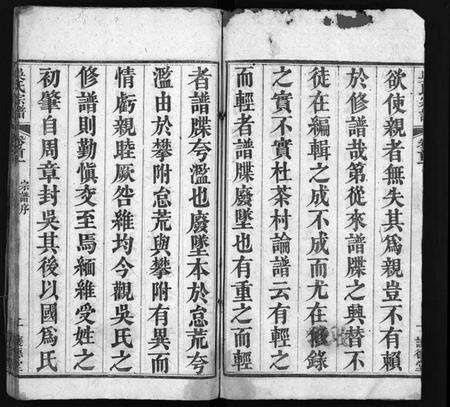 欲使親者無失其爲親豈不有賴
於修譜哉第從來譜牒之興替不
徒在編輯之成不成而尤在徵錄
之實不實杜茶村論譜云有輕之
而輕者譜牒廢墜也有重之而輕
者譜牒夸濫也廢墜本於怠荒夸
濫由於攀附怠荒與攀附有異而
情虧親睦厥咎維均今觀吳氏之
修譜則勤愼交至焉緬維受姓之
初肇自周章封吳其後以國爲氏
吳氏宗譜
卷首
宗譜序
一